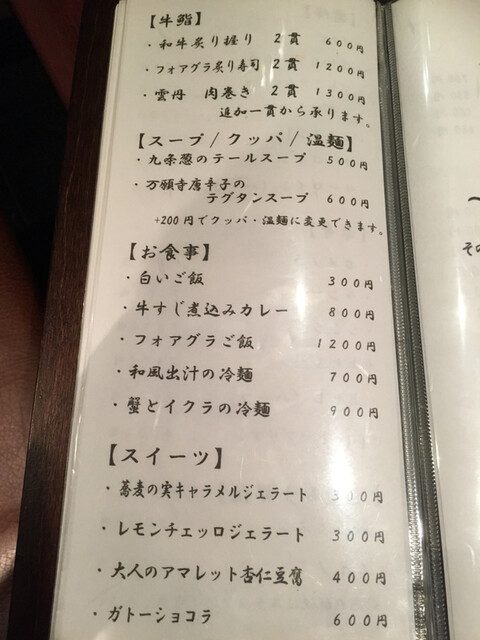 【牛鮨】
・和牛炙り握り 2貫 600円
・フォアグラ炙り寿司 2貫 1200円
・雲丹 肉巻き 2貫 1300円
追加一貫から承ります。
【スープ/クッパ/温麺】
・九条葱のテールスープ 500円
・万願寺唐辛子の
テグタンスープ 600円
+200円でクッパ・温麺に変更できます。
【お食事】
・白いご飯 300円
・牛すじ煮込みカレー 800円
・フォアグラご飯 1200円
・和風出汁の冷麺 700円
・蟹とイクラの冷麺 900円
【スイーツ】
・蕎麦の実キャラメルジェラート 300円
・レモンチェッロジェラート 300円
・大人のアマレット杏仁豆腐 400円
・ガトーショコラ 600円
その